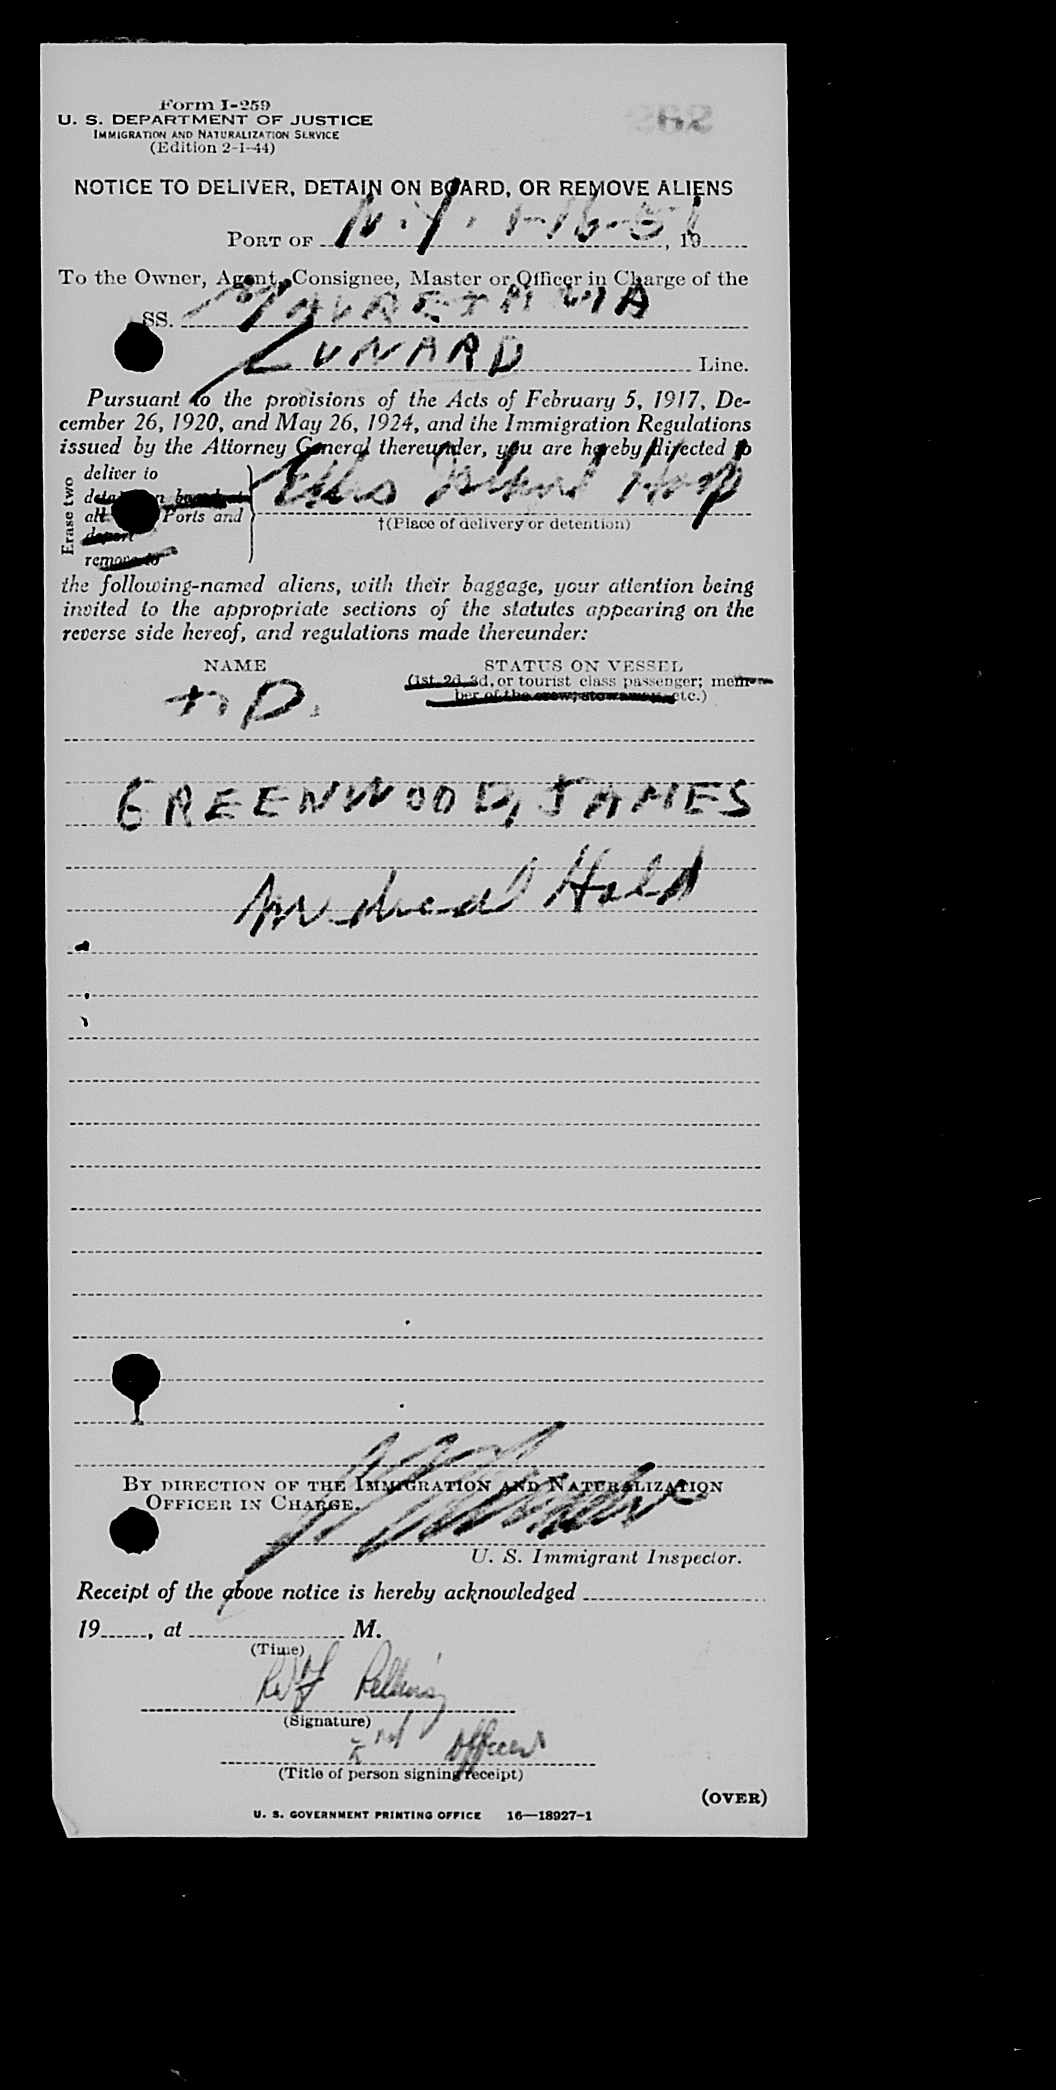 Form I-259
U. S. DEPARTMENT OF JUSTICE
IMMIGRATION AND NATURALIZATION SERVICE
(Edition 2-1-44)
NOTICE TO DELIVER, DETAIN ON BOARD, OR REMOVE ALIENS
PORT OF N.Y. 1-16-51, 19
To the Owner, Agent, Consignee, Master or Officer in Charge of the
SS. MAURETANIA
CUNARD Line.
Pursuant to the provisions of the Acts of February 5, 1917, De-
cember 26, 1920, and May 26, 1924, and the Immigration Regulations
issued by the Attorney General thereunder, you are hereby directed to
Erase two
deliver to
detain on board at
all Ports and
deport
remove to
Ellis Island Hosp
†(Place of delivery or detention)
the following-named aliens, with their baggage, your attention being
invited to the appropriate sections of the statutes appearing on the
reverse side hereof, and regulations made thereunder:
NAME STATUS ON VESSEL
(1st, 2d, 3d, or tourist class passenger; mem-
ber of the crew; stowaway, etc.)
GREENWOOD, JAMES
Medical Hold
BY DIRECTION OF THE IMMIGRATION AND NATURALIZATION
OFFICER IN CHARGE.
U. S. Immigrant Inspector.
Receipt of the above notice is hereby acknowledged
19, at M.
(Time)
(Signature)
2nd Officer
(Title of person signing receipt)
(OVER)
U. S. GOVERNMENT PRINTING OFFICE 16—18927-1